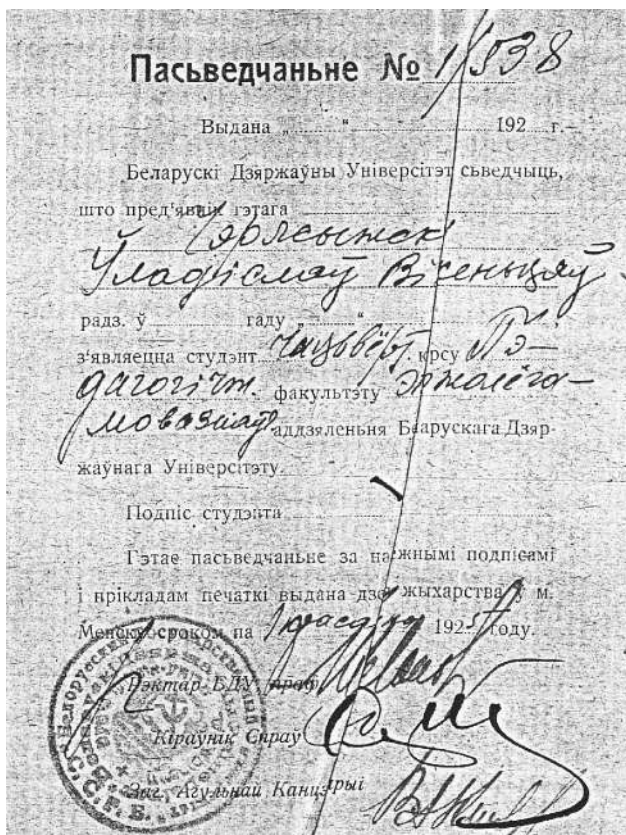 Пасьведчаньне № 1/538
Выдана „ “ 192 г.
Беларускі Дзяржаўны Універсітэт сьведчыць,
што прэд'явіў гэтага
Уладіслаў Вікеньцяў
радз. ў гаду „ “
з'являецца студэнт чацьвёрт. крсу Пэ-
дагогічн. факультэту этнолёга-
мовазнаў аддзяленьня Беларускага Дзяр-
жаўнага Універсітэту.
Подпіс студэнта
Гэтае пасьведчаньне за на жнымі подпісамі
і прікладам печаткі выдана дзе жыхарства ў м.
Менску сроком па 1 192 году.
Рэктар БДУ праф.
Кіраўнік Спраў
Заг. Агульнай Канцэ рыі
С.С.Р.Б.